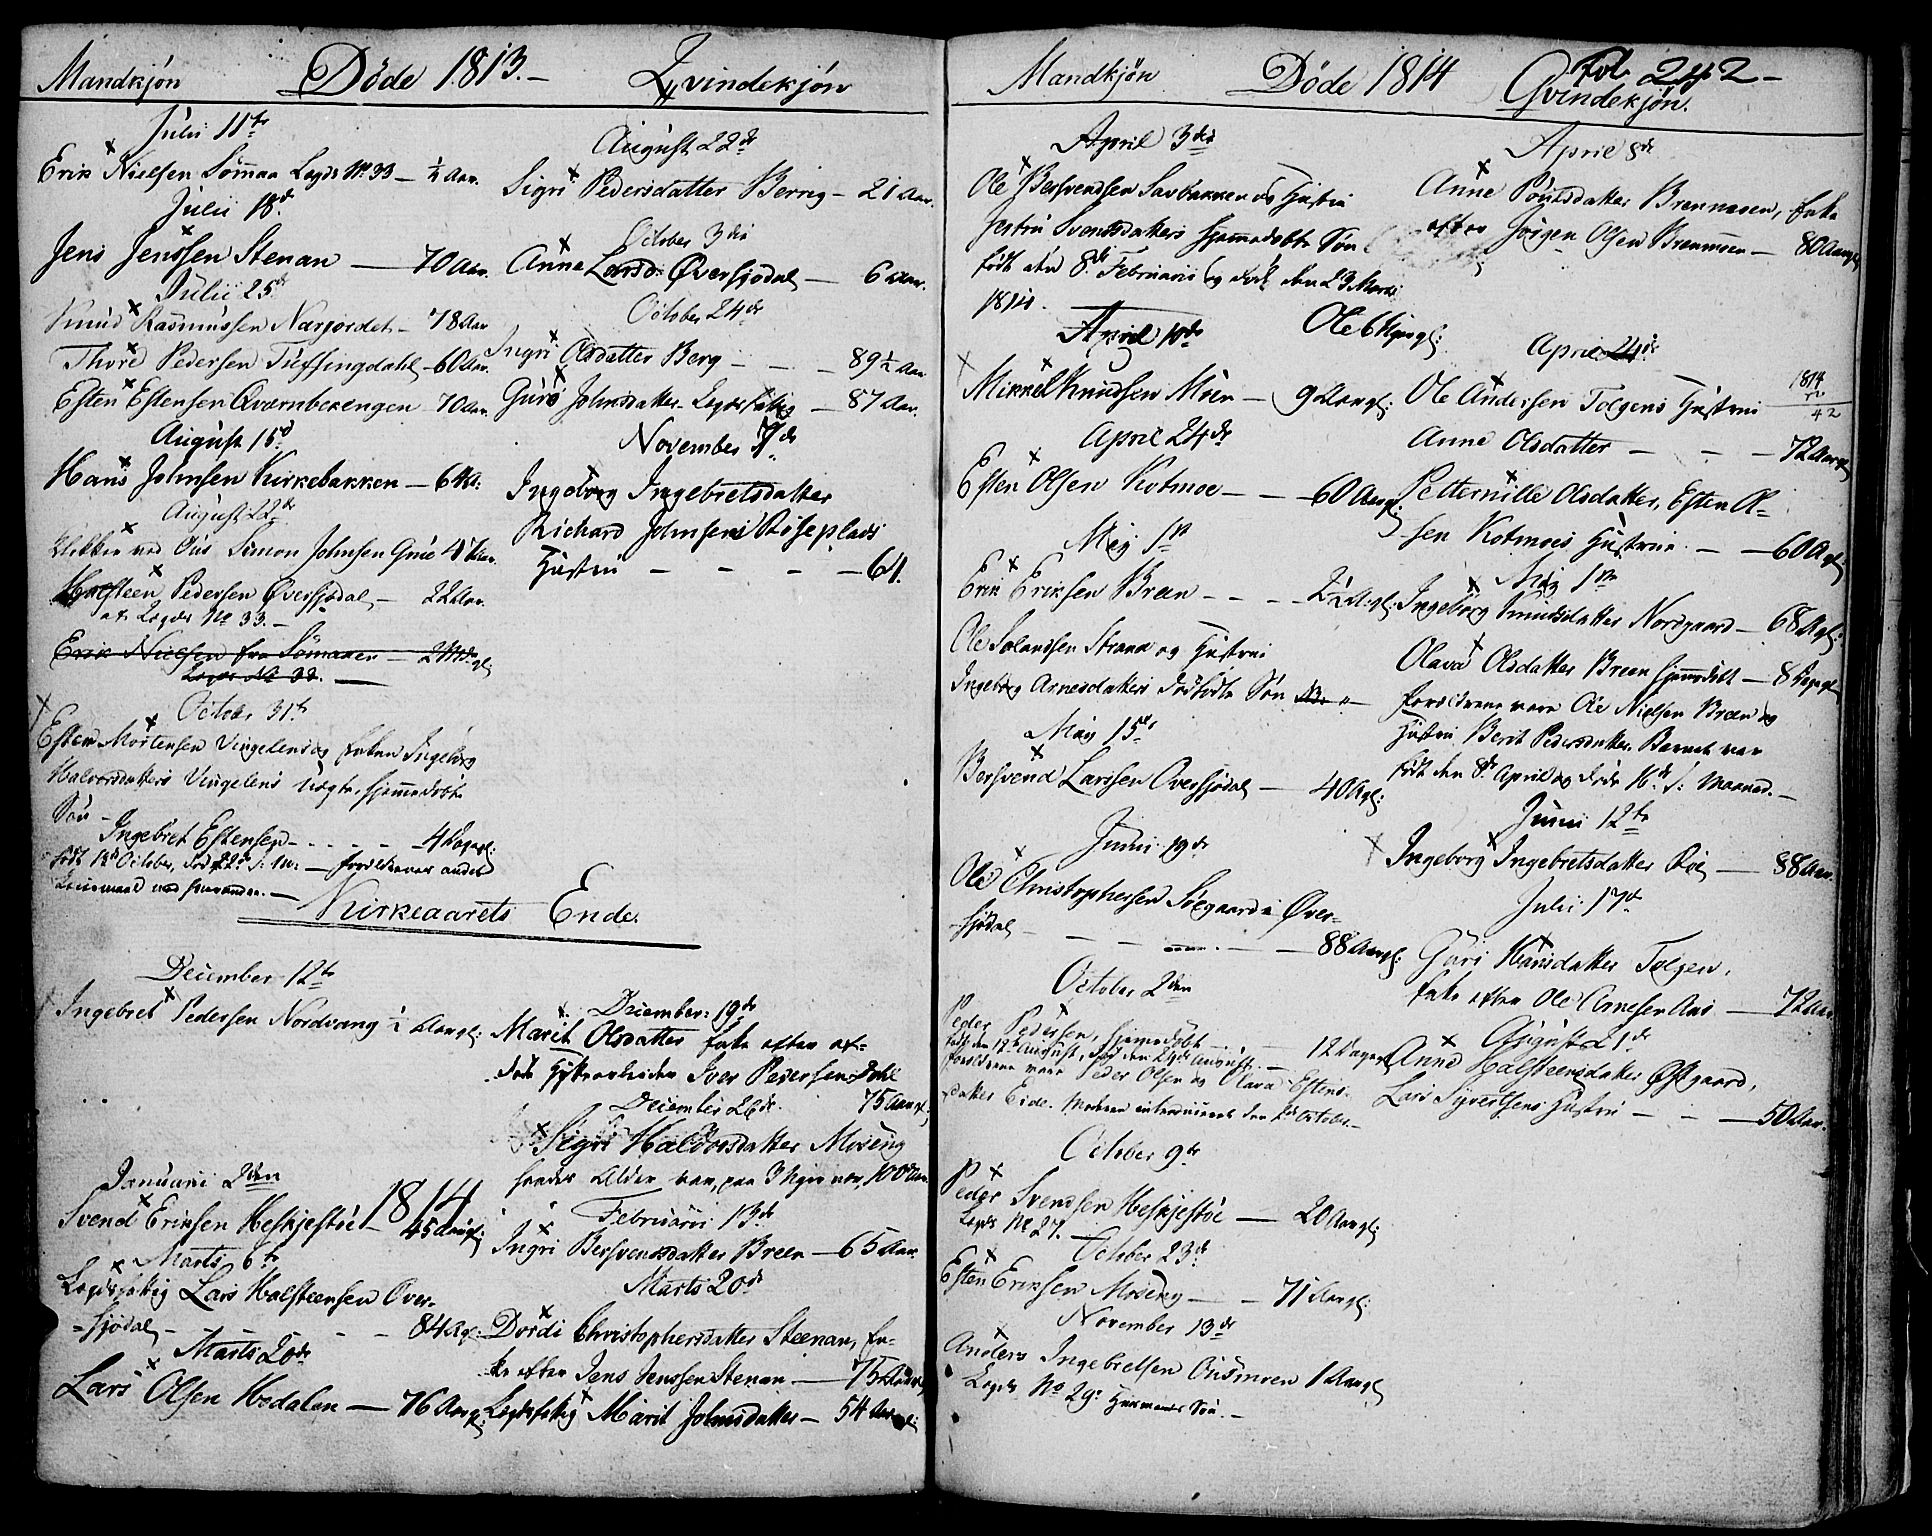 Mandkjön Döde 1813.- Qvindekjön
Julii 11te
Erik Nielsen Sömaa Legds No 33 — ½ Aar.
Julii 18de
Jens Jenssen Stenan — 70 Aar.
Julii 25de
Knud Rasmussen Nærjordet — 78 Aar
Thore Pedersen — 60 Aar.
Esten Estensen Qværnbekengen — 70 Aar.
August 15de
Hans Johnsen Kirkebakken — 6 Ar:
August 22de
Klokker ved Ous Simon Johnsen
Halsteen Pedersen Øversjödal — 22 Aar.
af Legds No 33. —
Erik Nielsen fra Sömaaen —
Legds No 33. —
October 31te
Esten Mortensen Vingelens og Ingeborg
Halvorsdatters Vingelens hjemmedöbte
Sön —
Ingebret Estensen — 4 Dage gl:
födt 18de October, död 22de s. M: — forældrenes andet
Leiermaal med hinanden. —
Kirkeaarets Ende.
December 12te
Ingebret Pedersen Nordvang ½ Aar gl:
Januarii 2den 1814
Svend Eriksen Heskjestöe — 45 Aar gl:
Marts 6te
Legdsfattig Lars Halsteensen Over-
-sjödal — 84 A gl:
Marts 20de
Lars Olsen Hodalen — 76 Aar gl:
August 22de
Sigri Pedersdatter Berrig — 21 Aar.
October 3die
Anne Larsd: Øversjödal — 6 Aar.
October 24de
Ingri Olsdatter Berg — 89½ Aar
Guro Johnsdatter Legdsfattig — 87 Aar.
November 7de
Ingeborg Ingebretsdatter
Richard Johnsens Röseplads
Hustru — 61.
December 19de
Marit Olsdatter Enke efter af-
döde Hytteværkeider Iver Pedersen Dahl
75 Aar gl:
December 26de
Sigri Haldorsdatter Moseng
hendes Alder var, paa 3 Uger nær, 100 Aar.
Februarii 13de
Ingri Bersvendsdatter Breen — 65 Aar.
Marts 20de
Dordi Christophersdatter Steenan, En-
ke efter Jens Jenssen Stenan — 75 Aar gl
Legdsfattig Marit Johnsdatter — 54 Aar gl:
Mandkjön Döde 1814 Qvindekjön.
Fol. 242 —
April 3die
Ole Bersvendsen Savbakken og Hustru
Svendsdatters hjemmedöbte Sön
födt den 8de Februarii og död den 23 Marts
1814.
Ole 6 Uger gl:
April 10de
Mikkel Knudsen Moen — 9 Aar gl:
April 24de
Esten Olsen Kotmoe — 60 Aar gl:
Maj 1ste
Erik Eriksen Breen — 2½ A: gl:
Ole Strand og Hustrue
Ingeborg Arnesdatters dödfödte Sön
Maj 15de
Bersvend Larssen Oversjödal — 40 A gl:
Junii 19de
Ole Christophersen Solgaard i Øver-
-sjödal — 88 Aar gl:
October 2den
Peder Pedersen, hjemmedöbt — 12 Dage gl
födt den 17de August, död den 29de August. —
forældrene vare Peder Olsen og Olava Estens-
datter Eide. Moderen introduceret den 2de October. —
October 9de
Peder Svendsen Heskjestöe — 20 Aar gl:
Legds No 27. —
October 23de
Esten Eriksen Moseng — 71 Aar gl:
November 13de
Anders Ingebretsen Ousmoen 1 Aar gl
Legds No 29. Huusmands Sön. —
April 8de
Anne Brennmoen, Enke
efter Jörgen Olsen Brennmoen — 80 Aar gl
April 24de
Ole Andersen Tolgens Hustrue
1814
42
Anne Olsdatter — 72 Aar gl
Petternille Olsdatter, Esten Ol-
sen Kotmoes Hustrue. — 60 A gl
Maj 1ste
Ingeborg Knudsdatter Nordgaard — 68 A gl:
Olava Olsdatter Breen hjemmedöbt — 8 Dage gl
forældrene vare Ole Nielsen Breen og
Hustru Berit Pedersdatter. Barnet var
födt den 8de April og döde 16de s: Maaned. —
Junii 12te
Ingeborg Ingebretsdatter Röe — 88 Aar.
Julii 17de
Guri Hansdatter Tolgen,
Enke efter Ole Arnesen Aas — 72 Aar
August 21de
Anne Halsteensdatter Østgaard,
Lars Syvertsens Hustru — 50 Aar.